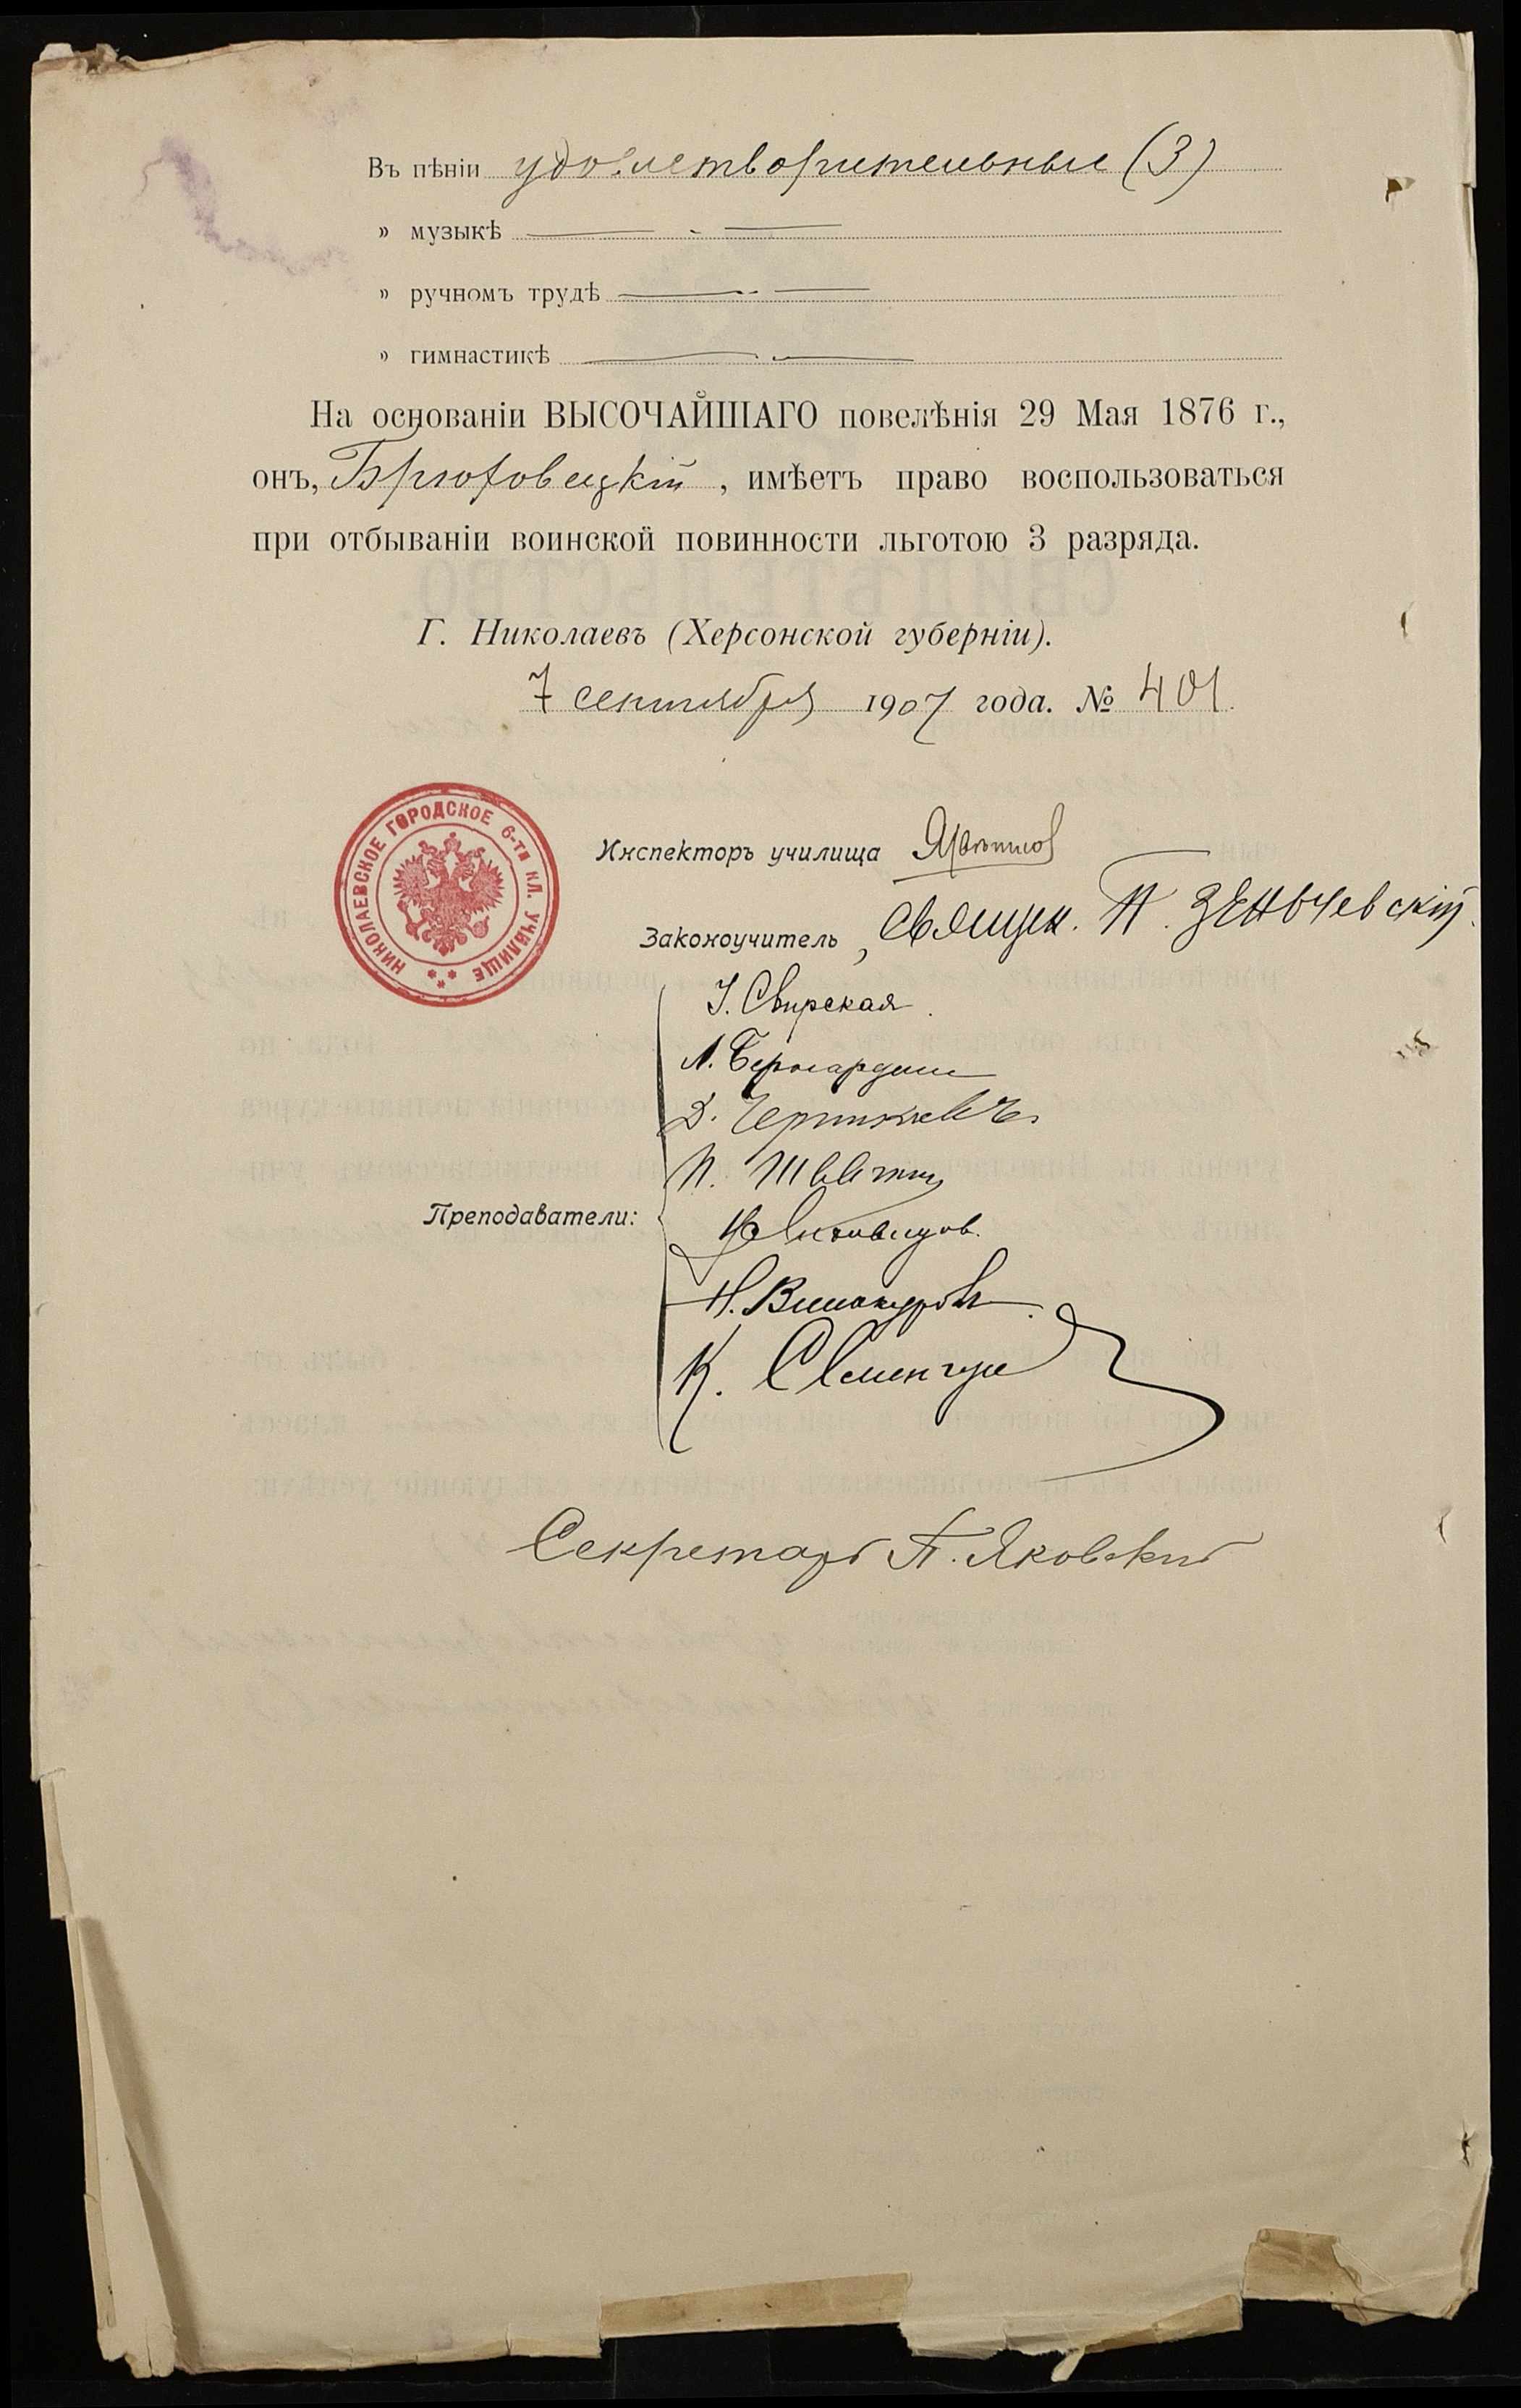 Въ пѣніи удовлетворительные (3)
» музыкѣ
» ручномъ трудѣ
» гимнастикѣ
На основаніи ВЫСОЧАЙШАГО повелѣнія 29 Мая 1876 г.,
онъ, Брюховецкій, имѣетъ право воспользоваться
при отбываніи воинской повинности льготою 3 разряда.
Г. Николаевъ (Херсонской губерніи).
7 сентября 1907 года. № 401.
НИКОЛАЕВСКОЕ ГОРОДСКОЕ 6-ти КЛ. УЧИЛИЩЕ
Инспекторъ училища
Законоучитель, Священ. П. Зенычевскій.
І. Свирская.
Л.
Д.
П.
Преподаватели:
Н. Винокуровъ.
К.
Секретарь П. Яковскій